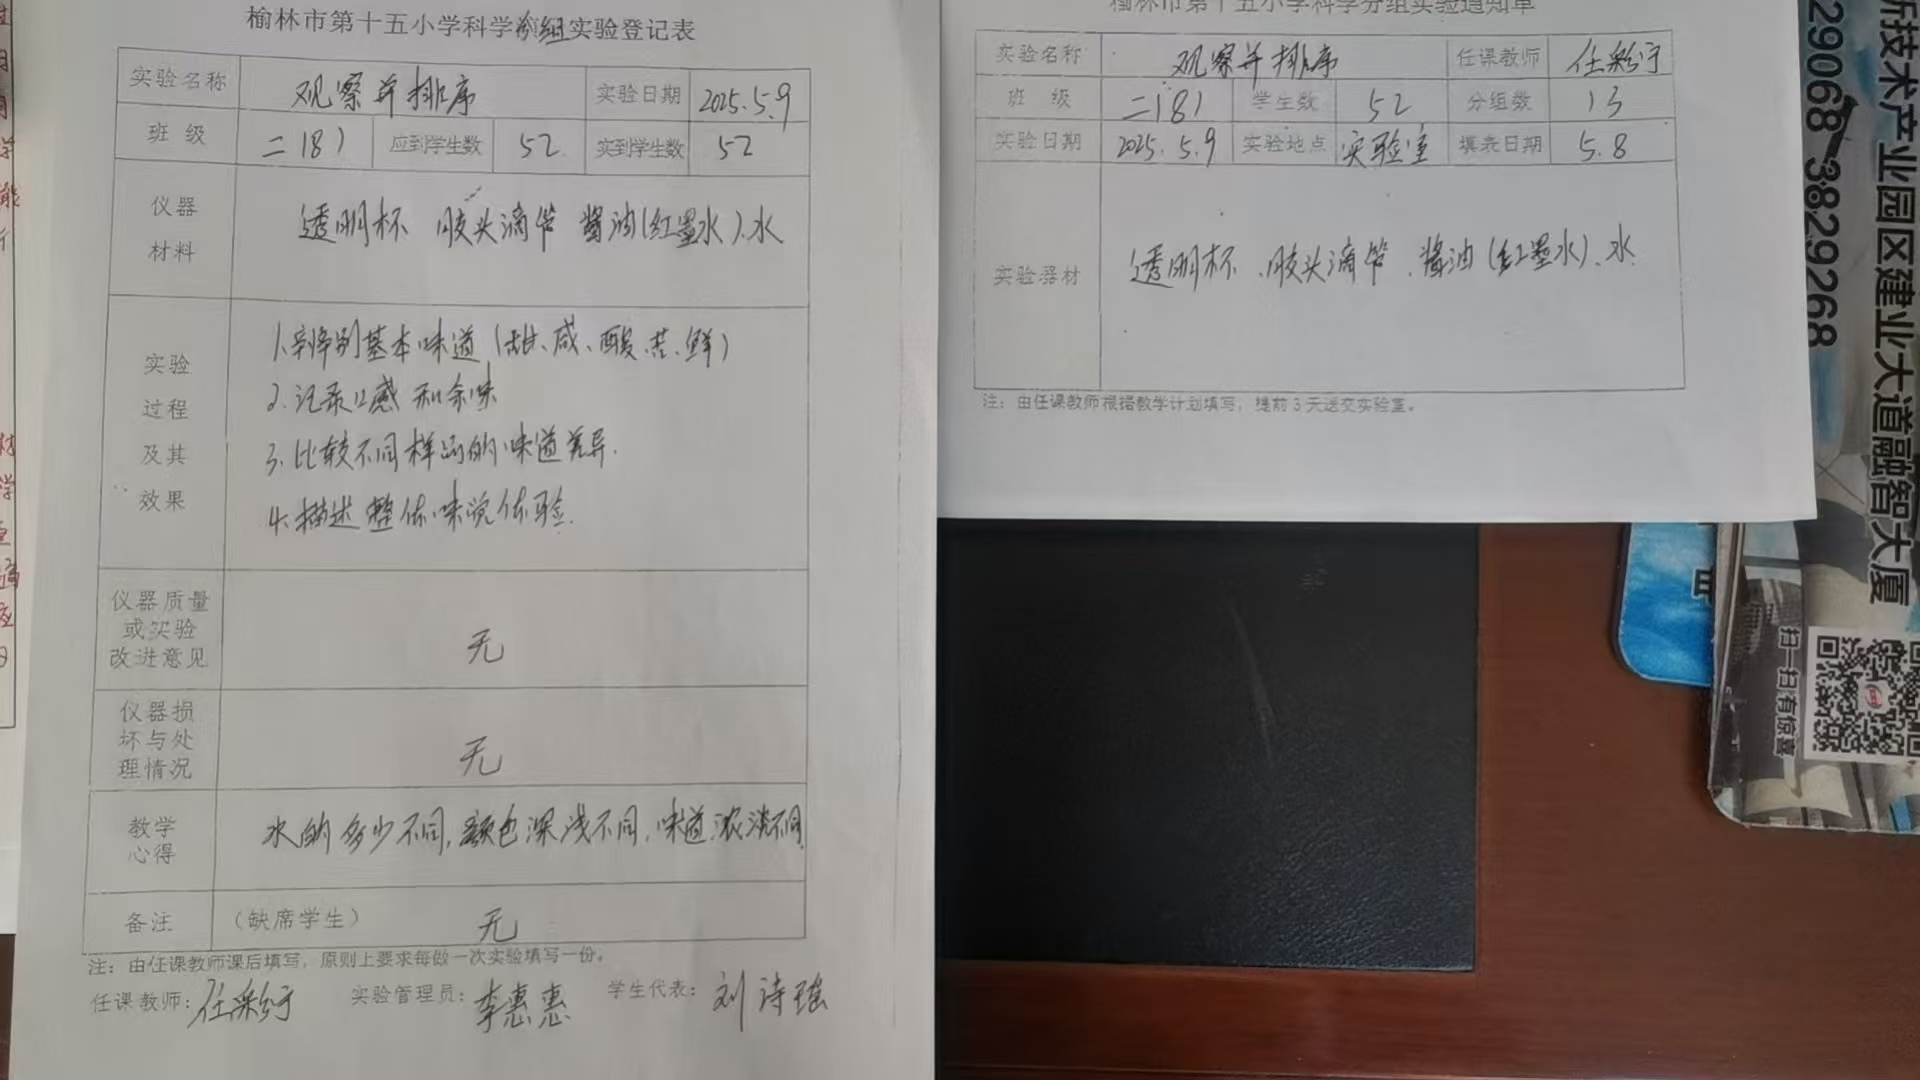 榆林市第十五小学科学分组实验登记表
实验名称 观察并排序 实验日期 2025.5.9
班 级 二(8) 应到学生数 52 实到学生数 52
仪器
材料
透明杯 胶头滴管 酱油(红墨水)、水
实验
过程
及其
效果
1.辨别基本味道(甜、咸、酸、苦、鲜)
2.记录口感和余味
3.比较不同样品的味道差异.
4.描述整体味觉体验.
仪器质量
或实验
改进意见
无
仪器损
坏与处
理情况
无
教学
心得
水的多少不同,颜色深浅不同,味道浓淡不同.
备注 (缺席学生) 无
注:由任课教师课后填写,原则上要求每做一次实验填写一份。
任课教师: 实验管理员:李惠惠 学生代表:刘诗瑶
榆林市第十五小学科学分组实验通知单
实验名称 观察并排序 任课教师
班 级 二(8) 学生数 52 分组数 13
实验日期 2025.5.9 实验地点 实验室 填表日期 5.8
实验器材 透明杯、胶头滴管、酱油(红墨水)、水
注:由任课教师根据教学计划填写,提前3天送交实验室。
新技术产业园区建业大道融智大厦
29068 3829268
扫一扫有惊喜